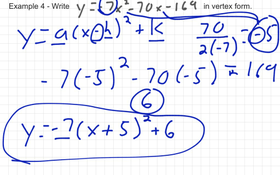 Example 4 - Write y = -7x² - 70x - 169 in vertex form.
y = a(x - h)² + k   70 / 2(-7) = -5
-7(-5)² - 70(-5) - 169
6
y = -7(x + 5)² + 6